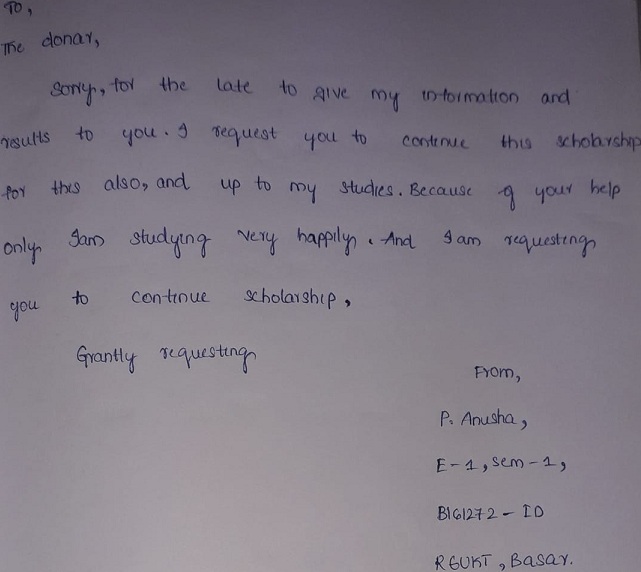 To,
The donar,
Sorry, for the late to give my information and
results to you. I request you to continue this scholarship
for this also, and up to my studies. Because of your help
only I am studying very happily. And I am requesting
you to continue scholarship,
Grantly requesting
From,
P. Anusha,
E-1, sem-1,
B161272 - ID
RGUKT, Basar.